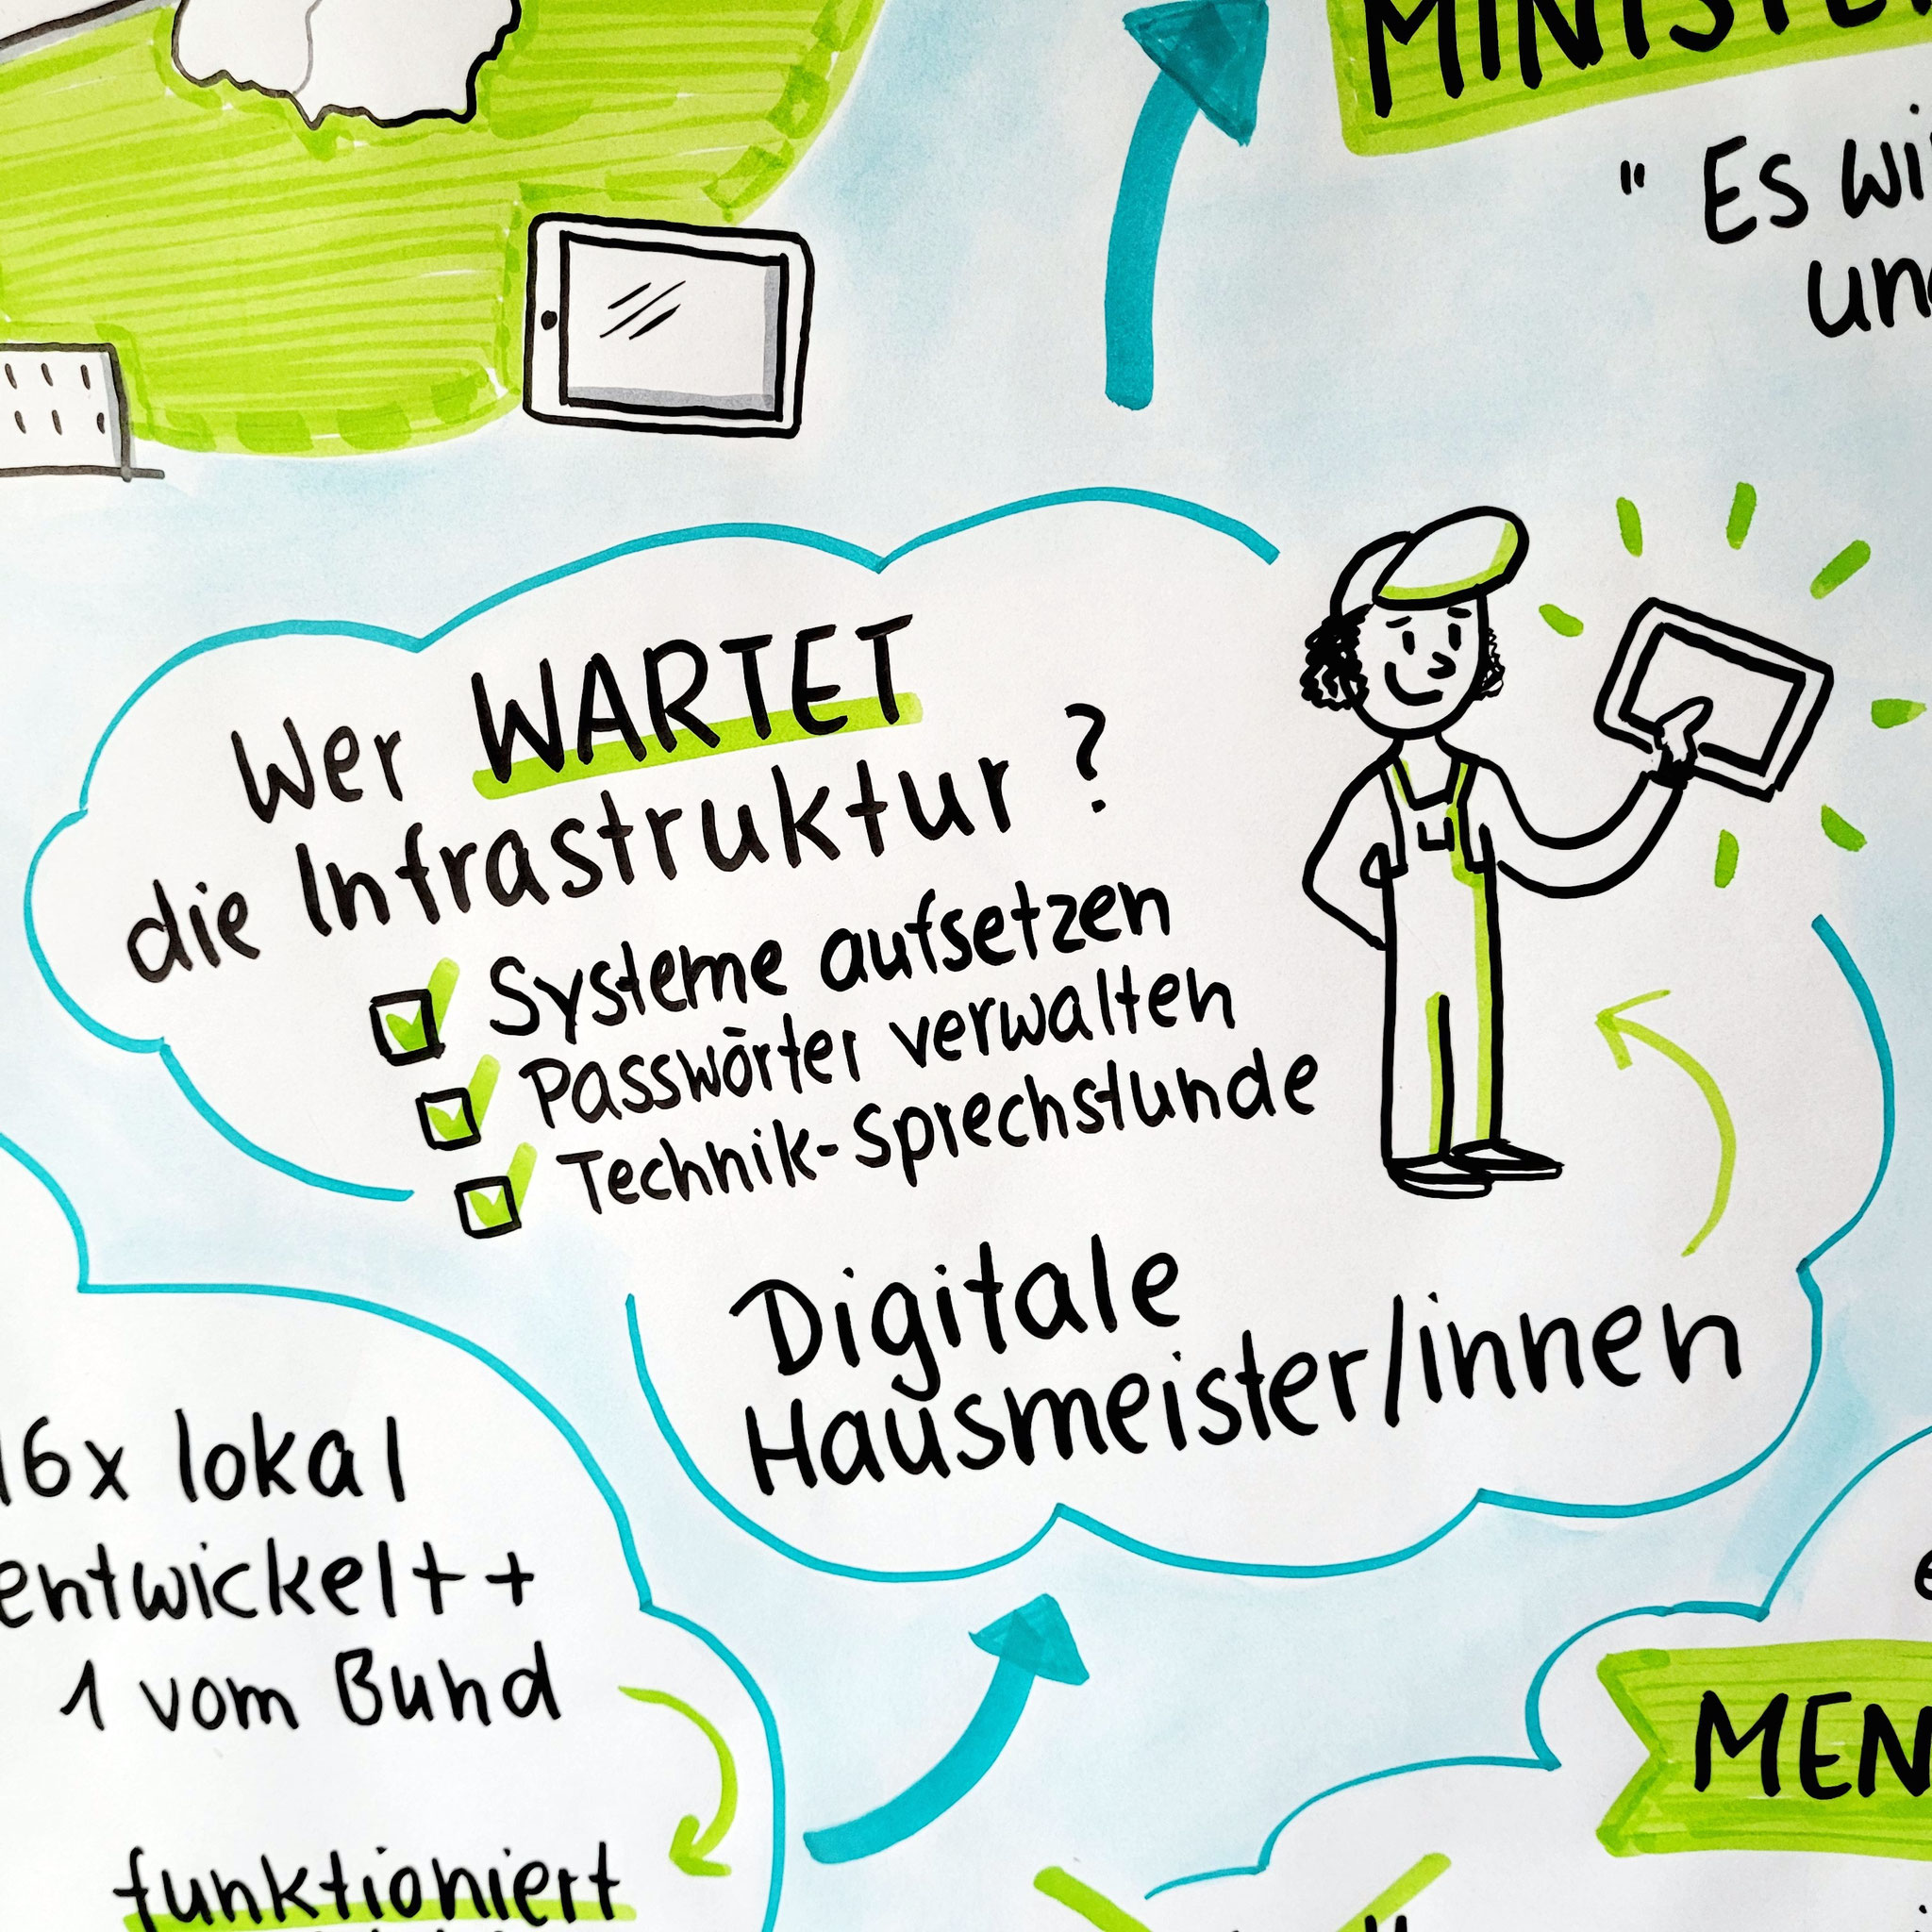 " Es
und
Wer WARTET
die Infrastruktur ?
Systeme aufsetzen
Passwörter verwalten
Technik-Sprechstunde
Digitale
Hausmeister/innen
16x lokal
entwickelt +
1 vom Bund
funktioniert